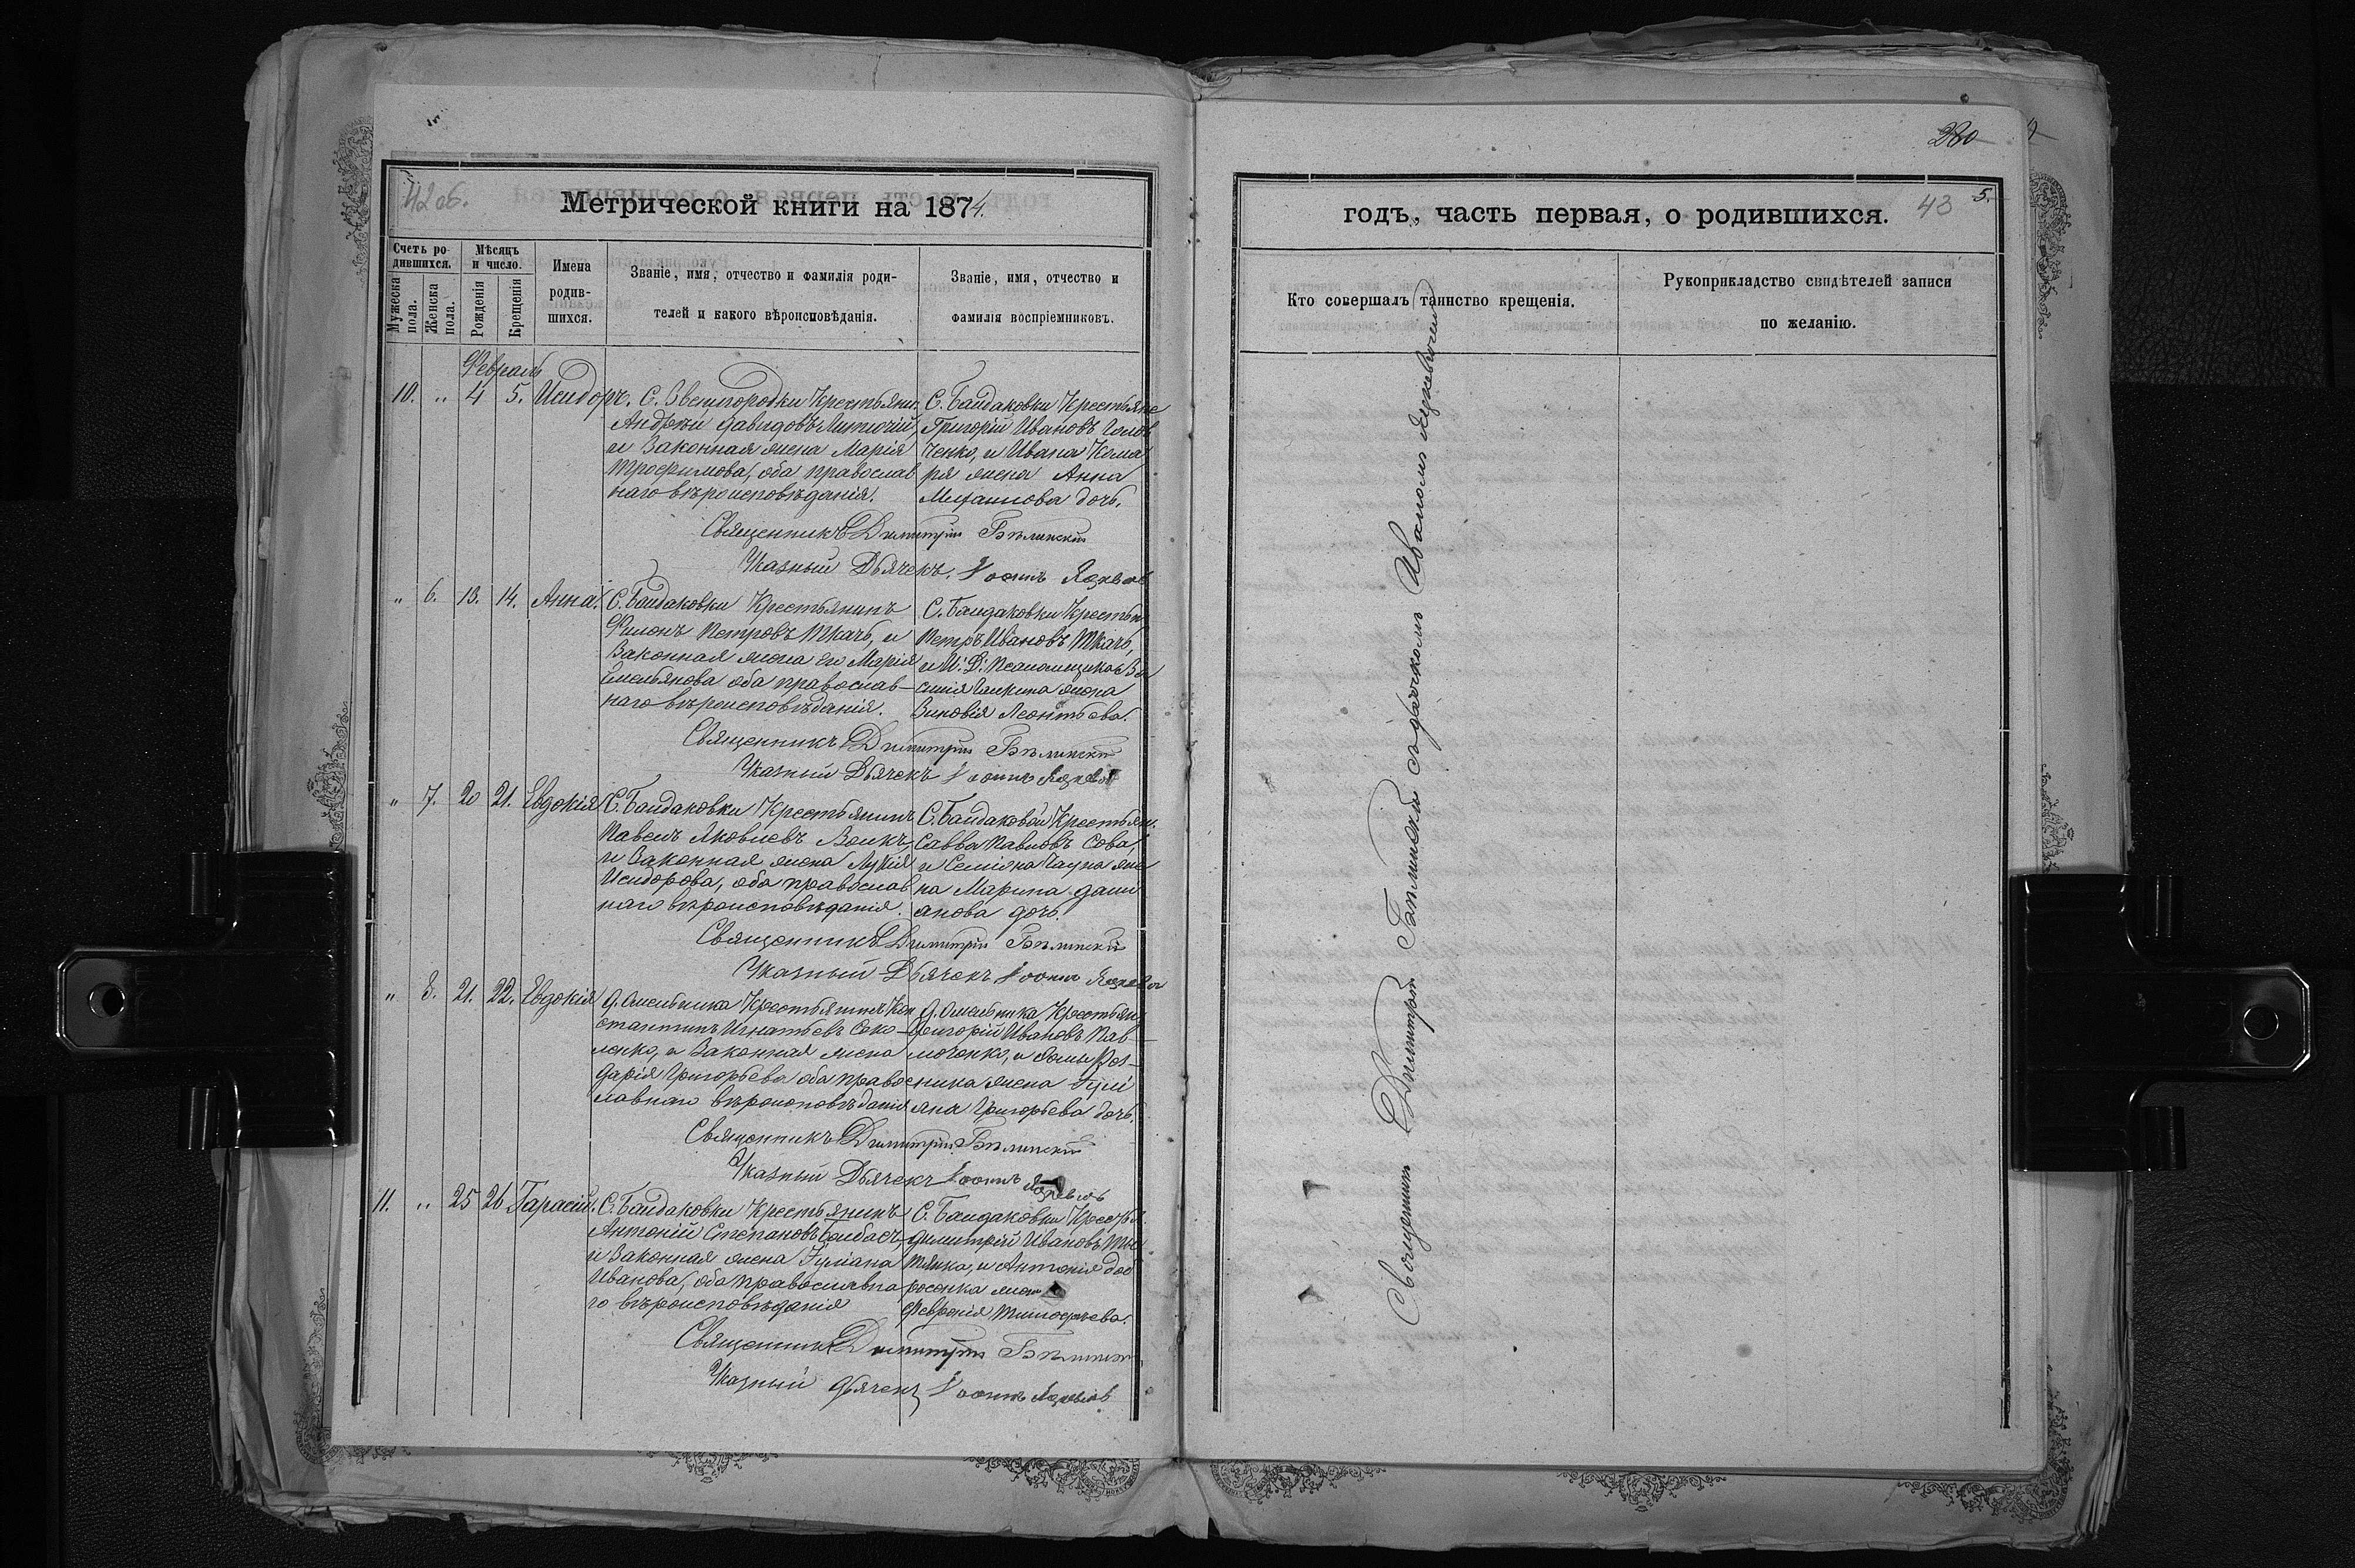 42 об.
Метрической книги на 1874.
Счетъ родившихся.
Мѣсяцъ и число.
Мужеска пола.
Женска пола.
Рожденія
Крещенія
Имена родив-
шихся.
Званіе, имя, отчество и фамилія роди-
телей и какого вѣроисповѣданія.
Званіе, имя, отчество и
фамилія воспріемниковъ.
Февраль
10. „ 4 5. Исидоръ. С. Звенигородки Крестьянин.
Андрей Давидовъ
и Законная жена Марія
Трофимова, оба православ
наго вѣроисповѣданія.
С. Байдаковки Крестьяне
Григорій Ивановъ Голов
ченко, и Ивана Кома
ря жена Анна
Михаилова дочь.
Священникъ Димитрій Бѣлинскій
Указный Дьячекъ
„ 6. 13. 14. Анна. С. Байдаковки Крестьянинъ
Филонъ Петровъ Ткачъ, и
Законная жена его Марія
Емельянова оба православ-
наго вѣроисповѣданія.
С. Байдаковки Крестьян
Петръ Ивановъ Ткачъ,
и
силія жена
Зиновія Леонтьева.
Священникъ Димитрій Бѣлинскій
Указный Дьячекъ
„ 7. 20 21. Евдокія С. Байдаковки Крестьянинъ
Павелъ Яковлевъ Волкъ,
и Законная жена Лукія
Исидорова, оба православ
наго вѣроисповѣданія.
С. Байдаковки Крестьян.
Савва Павловъ Сова,
и Семіона же
на Марина Дами
анова дочь.
Священникъ Димитрій Бѣлинскій
Указный Дьячекъ
„ 8. 21. 22. Евдокія Д. Омельника Крестьянинъ Кон
стантинъ Игнатьевъ Соко-
ленко, и Законная жена
Дарія Григорьева оба правос
лавнаго вѣроисповѣданія
Д. Омельника Крестьян.
Григорій Ивановъ Пав-
люченко, и
жена Іулі
яна Григорьева дочь.
Священникъ Димитрій Бѣлинскій
Указный Дьячекъ
11. „ 25 26 Тарасій. С. Байдаковки Крестьянинъ
Антоній Степановъ
и Законная жена Іуліана
Иванова, оба православна
го вѣроисповѣданія
С. Байдаковки Крестья.
Димитрій Ивановъ
и Антонія
жена
Февронія Тимофеева.
Священникъ Димитрій Бѣлинскій
Указный Дьячекъ
280
43
5.
годъ, часть первая, о родившихся.
Кто совершалъ таинство крещенія.
Рукоприкладство свидѣтелей записи
по желанію.
Священникъ Димитрій Бѣлинскій съ дьячкомъ